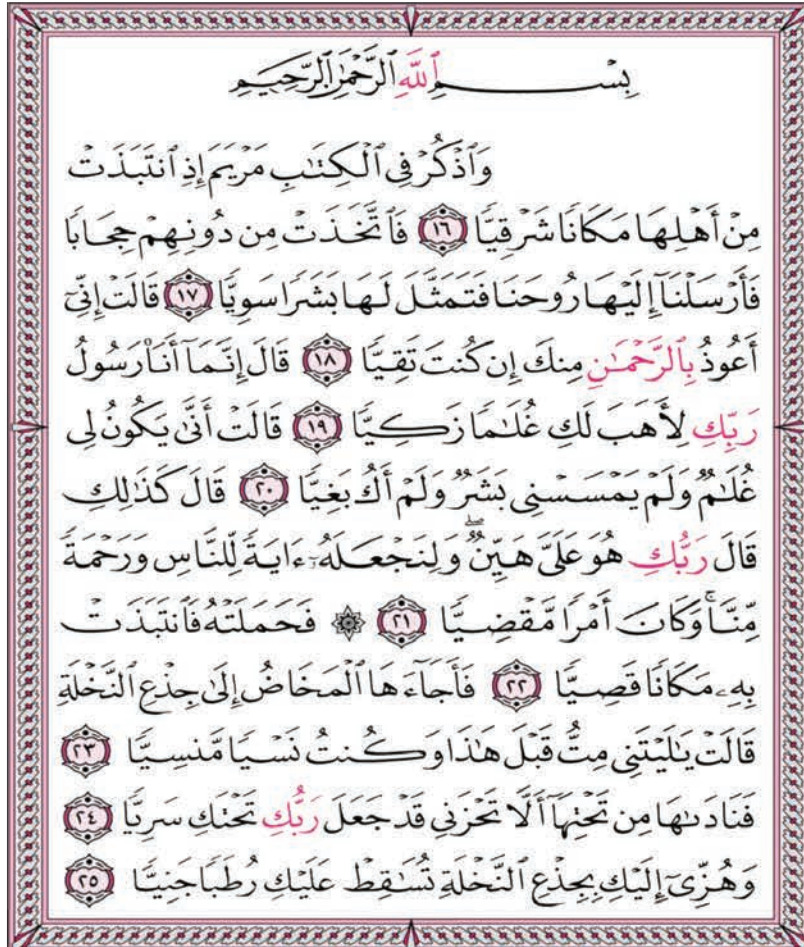 بِسْمِ ٱللَّهِ ٱلرَّحْمَٰنِ ٱلرَّحِيمِ
وَٱذْكُرْ فِى ٱلْكِتَٰبِ مَرْيَمَ إِذِ ٱنتَبَذَتْ
مِنْ أَهْلِهَا مَكَانًا شَرْقِيًّا ١٦ فَٱتَّخَذَتْ مِن دُونِهِمْ حِجَابًا
فَأَرْسَلْنَآ إِلَيْهَا رُوحَنَا فَتَمَثَّلَ لَهَا بَشَرًا سَوِيًّا ١٧ قَالَتْ إِنِّىٓ
أَعُوذُ بِٱلرَّحْمَٰنِ مِنكَ إِن كُنتَ تَقِيًّا ١٨ قَالَ إِنَّمَآ أَنَا۠ رَسُولُ
رَبِّكِ لِأَهَبَ لَكِ غُلَٰمًا زَكِيًّا ١٩ قَالَتْ أَنَّىٰ يَكُونُ لِى
غُلَٰمٌ وَلَمْ يَمْسَسْنِى بَشَرٌ وَلَمْ أَكُ بَغِيًّا ٢٠ قَالَ كَذَٰلِكِ
قَالَ رَبُّكِ هُوَ عَلَىَّ هَيِّنٌ ۖ وَلِنَجْعَلَهُۥٓ ءَايَةً لِّلنَّاسِ وَرَحْمَةً
مِّنَّا ۚ وَكَانَ أَمْرًا مَّقْضِيًّا ٢١ ۞ فَحَمَلَتْهُ فَٱنتَبَذَتْ
بِهِۦ مَكَانًا قَصِيًّا ٢٢ فَأَجَآءَهَا ٱلْمَخَاضُ إِلَىٰ جِذْعِ ٱلنَّخْلَةِ
قَالَتْ يَٰلَيْتَنِى مِتُّ قَبْلَ هَٰذَا وَكُنتُ نَسْيًا مَّنسِيًّا ٢٣
فَنَادَىٰهَا مِن تَحْتِهَآ أَلَّا تَحْزَنِى قَدْ جَعَلَ رَبُّكِ تَحْتَكِ سَرِيًّا ٢٤
وَهُزِّىٓ إِلَيْكِ بِجِذْعِ ٱلنَّخْلَةِ تُسَٰقِطْ عَلَيْكِ رُطَبًا جَنِيًّا ٢٥